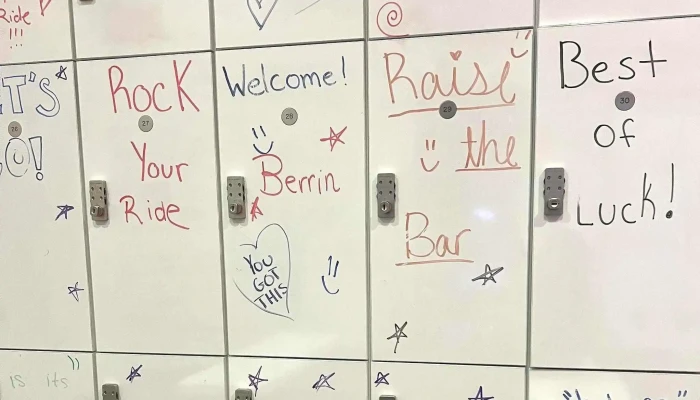 Ride
!!!
T'S
O!
26
Rock
27
Your
Ride
Welcome!
Berrin
YOU
GOT
THIS
Raise
29
the
Bar
Best
30
of
Luck!
is its